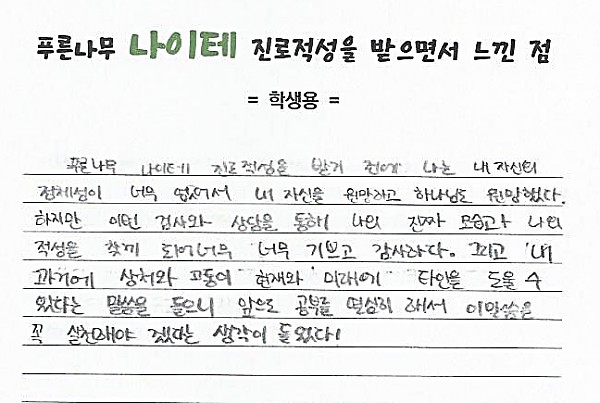 푸른나무 나이테 진로적성을 받으면서 느낀 점
= 학생용 =
푸른나무 나이테 진로적성을 받기 전에 나는 내 자신의
정체성이 너무 없어서 내 자신을 원망하고 하나님도 원망했다.
하지만 이런 검사와 상담을 통해 나의 진짜 모습과 나의
적성을 찾게 되어 너무 너무 기쁘고 감사하다. 그리고 '내
과거에 상처와 고통이 현재와 미래에 타인을 도울 수
있다'는 말씀을 들으니 앞으로 공부를 열심히 해서 이말씀을
꼭 실천해야 겠다는 생각이 들었다!